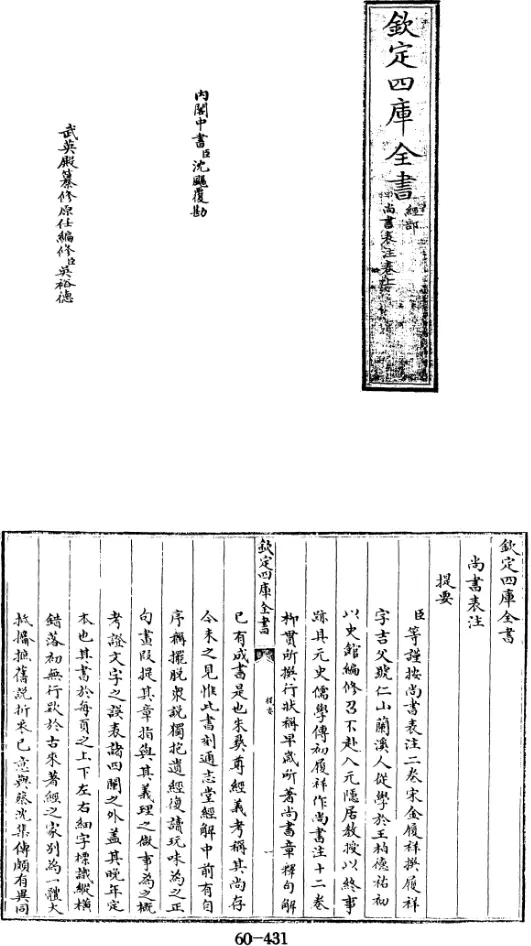 欽定四庫全書
經部
尚書表注卷上
內閣中書臣沈颺覆勘
武英殿纂修原任編修臣吳裕德
欽定四庫全書
尚書表注
提要
臣等謹按尚書表注二卷宋金履祥撰履祥
字吉父號仁山蘭溪人從學於王柏德祐初
以史館編修召不赴入元隱居教授以終事
跡具元史儒學傳初履祥作尚書注十二卷
柳貫所撰行狀稱早歲所著尚書章釋句解
欽定四庫全書
提要
一
已有成書是也朱彝尊經義考稱其尚存
今未之見惟此書刻通志堂經解中前有自
序稱擺脱衆說獨抱遺經復讀玩味為之正
句畫段提其章指與其義理之微事為之概
考證文字之誤表諸四闌之外蓋其晚年定
本也其書於每頁之上下左右細字標識縱橫
錯落初無行欵於古來著經之家别為一體大
抵攟摭舊說折衷己意與蔡沈集傳頗有異同
60-431